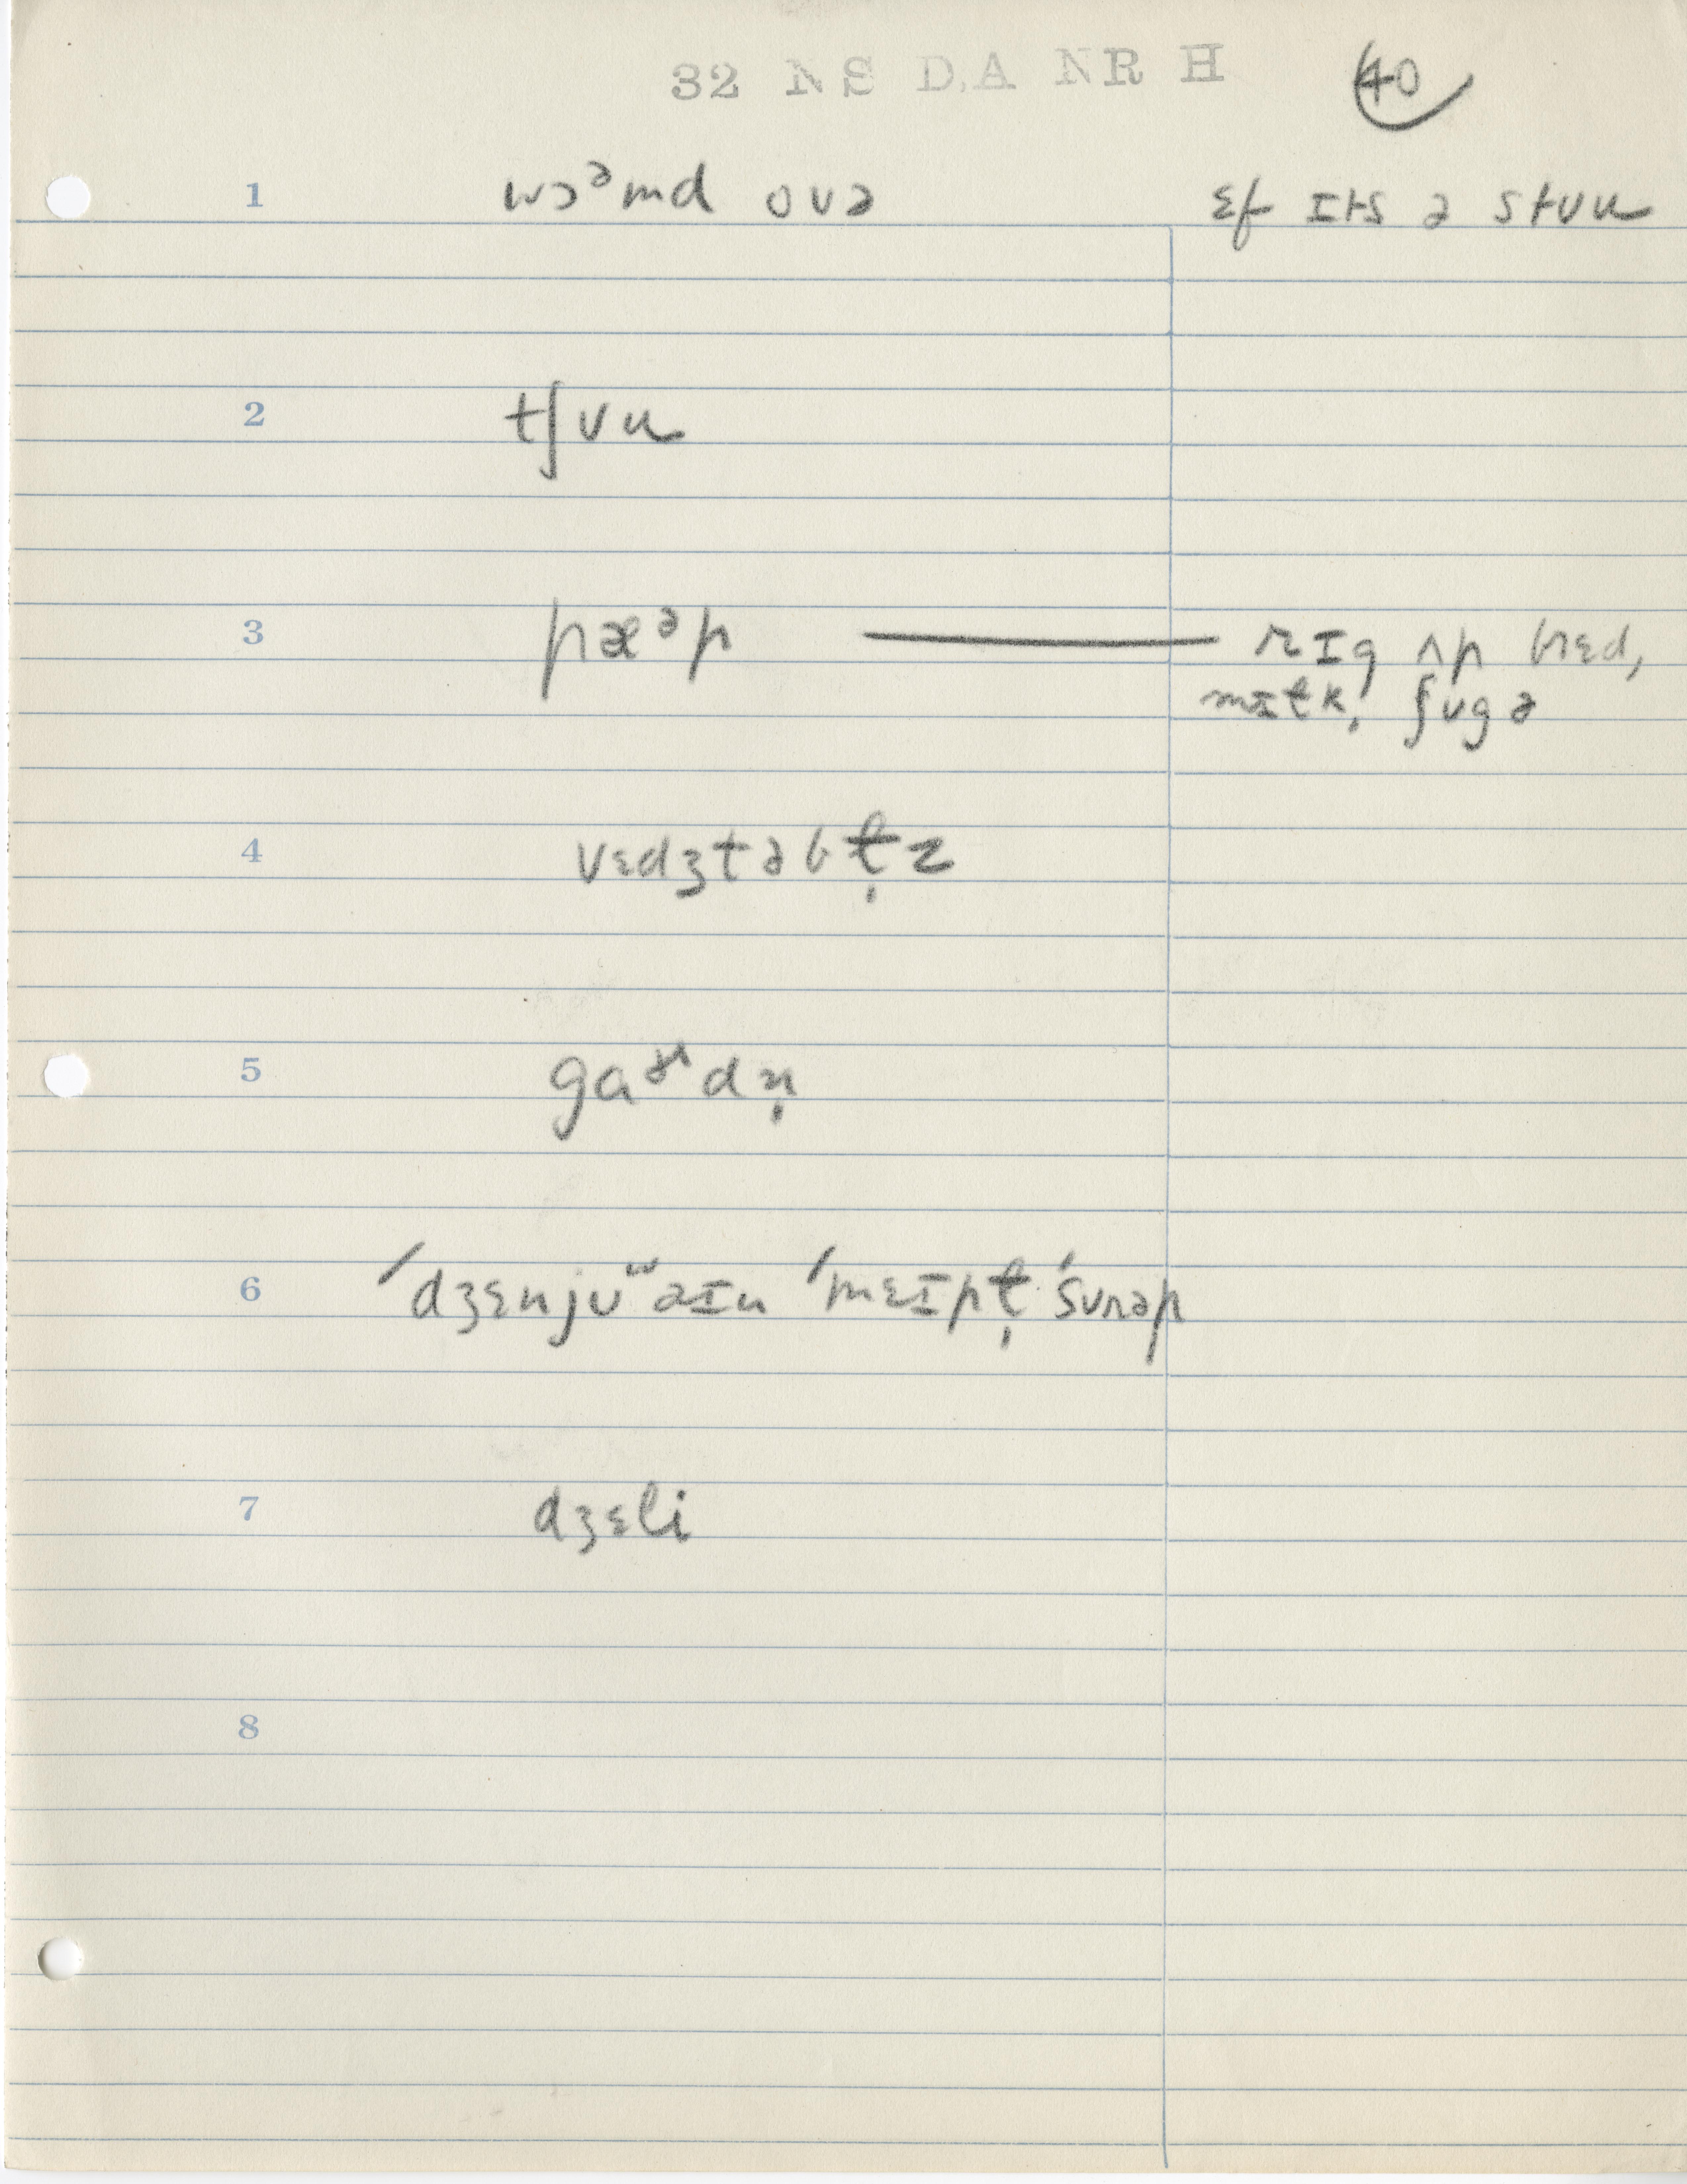 32 NS D.A NR H 40
1 wɔᵊmd ovə ɛf ɪts ə stʊu
2 tʃʊu
3 pæᵊp — rɪg ʌp brɛd,
mɪɫk, ʃʊgə
4 vɛdʒtəbɫ̩z
5 gaᵊʳdn̩
6 ˈdʒɛnjʊʷəɪn ˈmɛɪpɫ̩ ˈsʊrəp
7 dʒɛli
8